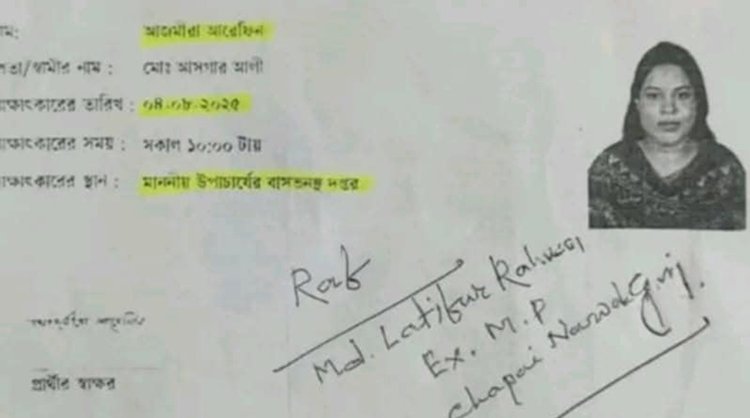 াম: আজমীরা আরেফিন
পতা/স্বামীর নাম : মোঃ আসগার আলী
াক্ষাৎকারের তারিখ : ০৪-০৮-২০২৫
াক্ষাৎকারের সময় : সকাল ১০:০০ টায়
াক্ষাৎকারের স্থান : মাননীয় উপাচার্যের বাসভনস্থ দপ্তর
Ref
Md. Latifur Rahman
Ex. M.P
Chapai Nawabgonj.
প্রার্থীর স্বাক্ষর